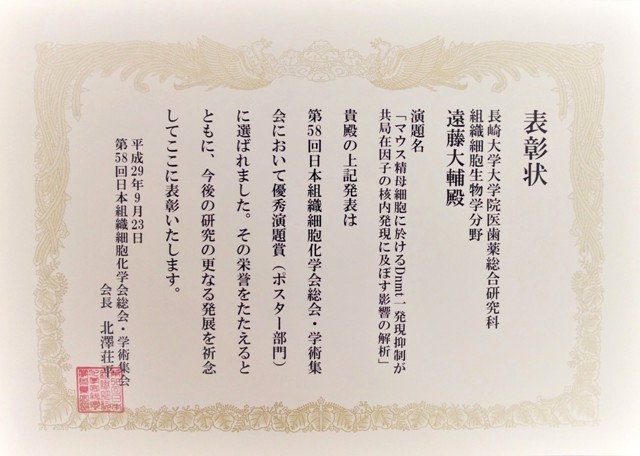 表彰状
長崎大学大学院医歯薬総合研究科
組織細胞生物学分野
遠藤大輔殿
演題名
「マウス精母細胞に於けるDnmt一発現抑制が
共局在因子の核内発現に及ぼす影響の解析」
貴殿の上記発表は
第58回日本組織細胞化学会総会・学術集
会において優秀演題賞（ポスター部門）
に選ばれました。その栄誉をたたえると
ともに、今後の研究の更なる発展を祈念
してここに表彰いたします。
平成29年9月23日
第58回日本組織細胞化学会総会・学術集会
会長 北澤荘平